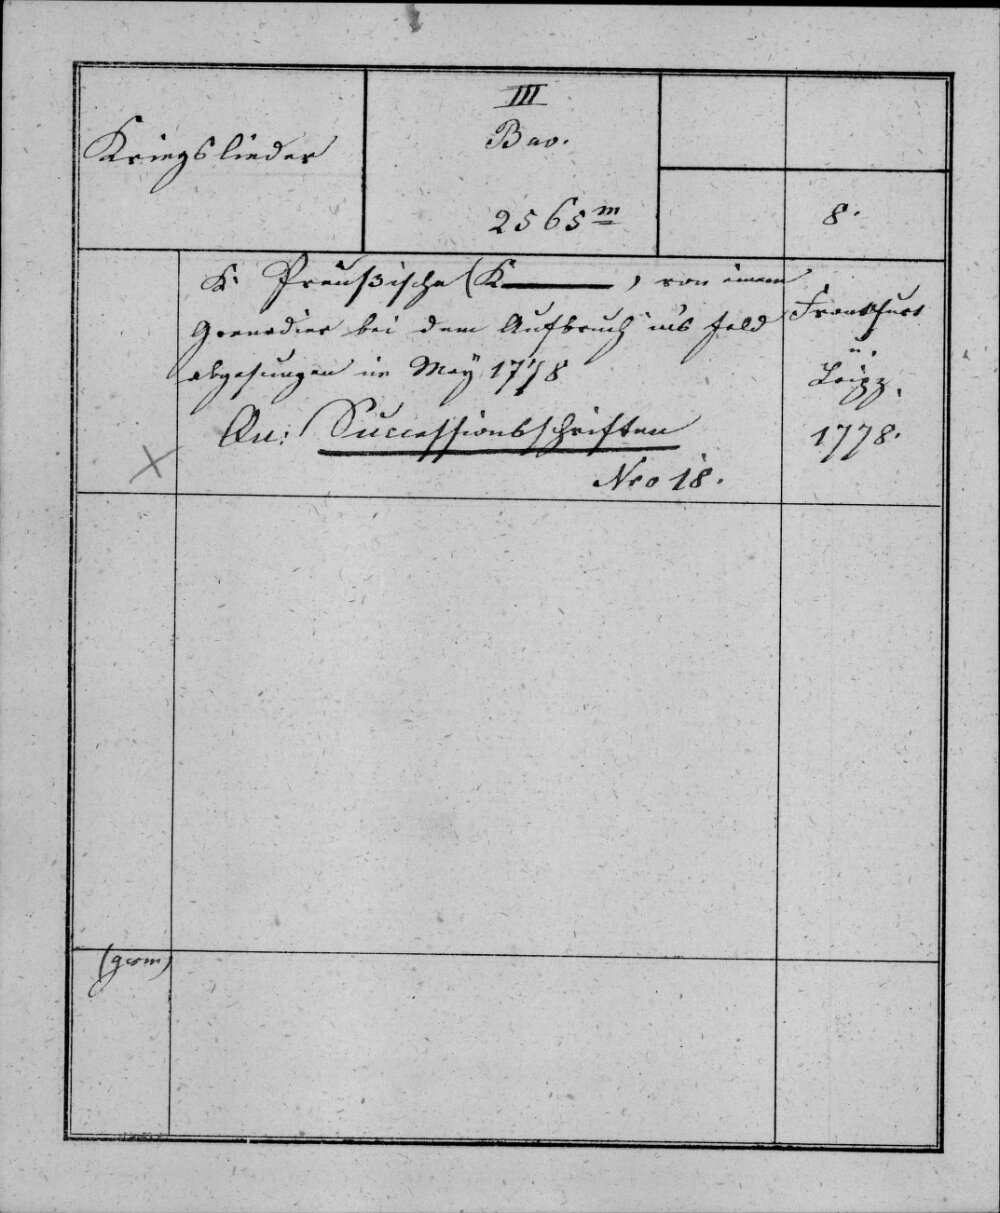 Kriegslieder
III
Bav.
2565 m
8.
K. Preußische (K———) von einem
Grenadier bei dem Aufbruch ins Feld
abgesungen im May 1778
An: Successionsschriften
Nro 18.
Frankfurt
u.
Leipz.
1778.
(germ)